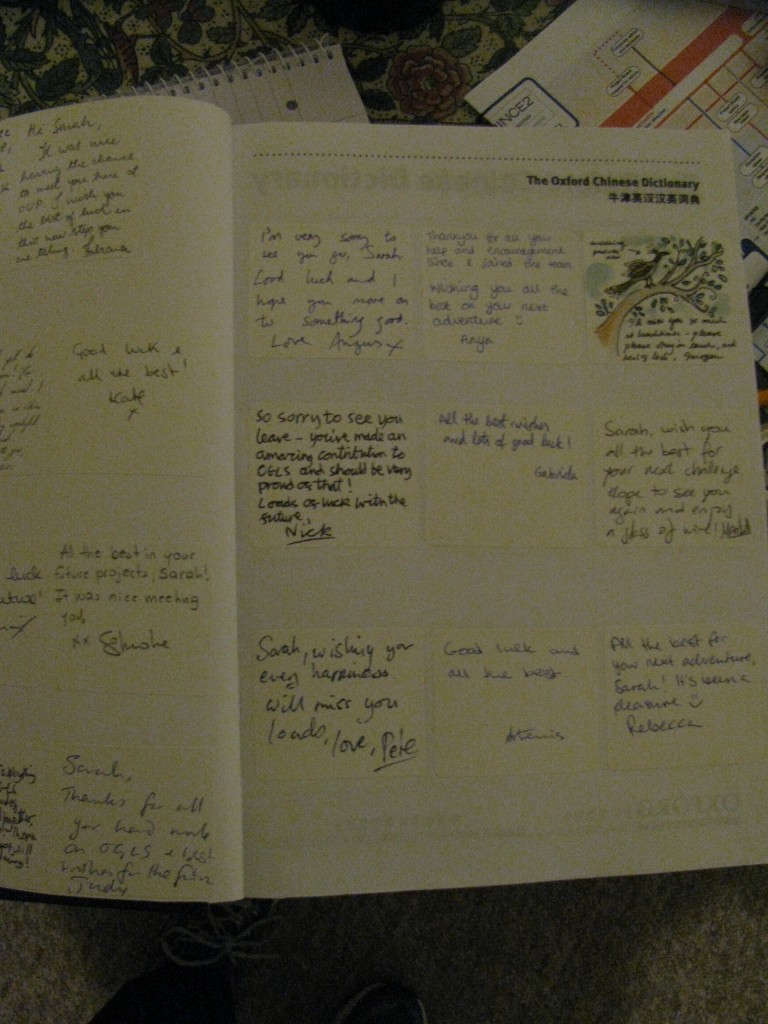 Hi Sarah,
It was nice
having the chance
to meet you here at
OUP. I wish you
the best of luck in
this new step you
are taking.
Good luck &
all the best!
Kate
x
All the best in your
future projects, Sarah!
It was nice meeting
you,
xx
luck
Sarah,
Thanks for all
your hard work
on OGLS & best
wishes for the future
Judy
The Oxford Chinese Dictionary
牛津英汉汉英词典
I'm very sorry to
see you go, Sarah
Good luck and I
hope you move on
to something good.
Love Angus x
Thankyou for all your
help and encouragement
since I joined the team
Wishing you all the
best on your next
adventure
Anya
I'll miss you so much
at lunchtimes - please
please stay in touch, and
best of luck, Imogen
So sorry to see you
leave - you've made an
amazing contribution to
OGLS and should be very
proud of that!
Loads of luck with the
future,
Nick
All the best wishes
and lots of good luck!
Gabriela
Sarah, wish you
all the best for
your next challenge
Hope to see you
again and enjoy
a glass of wine!
Sarah, wishing you
every happiness
will miss you
loads, love, Pete
Good luck and
all the best.
Artemis
All the best for
your next adventure,
Sarah! It's been a
pleasure
Rebecca